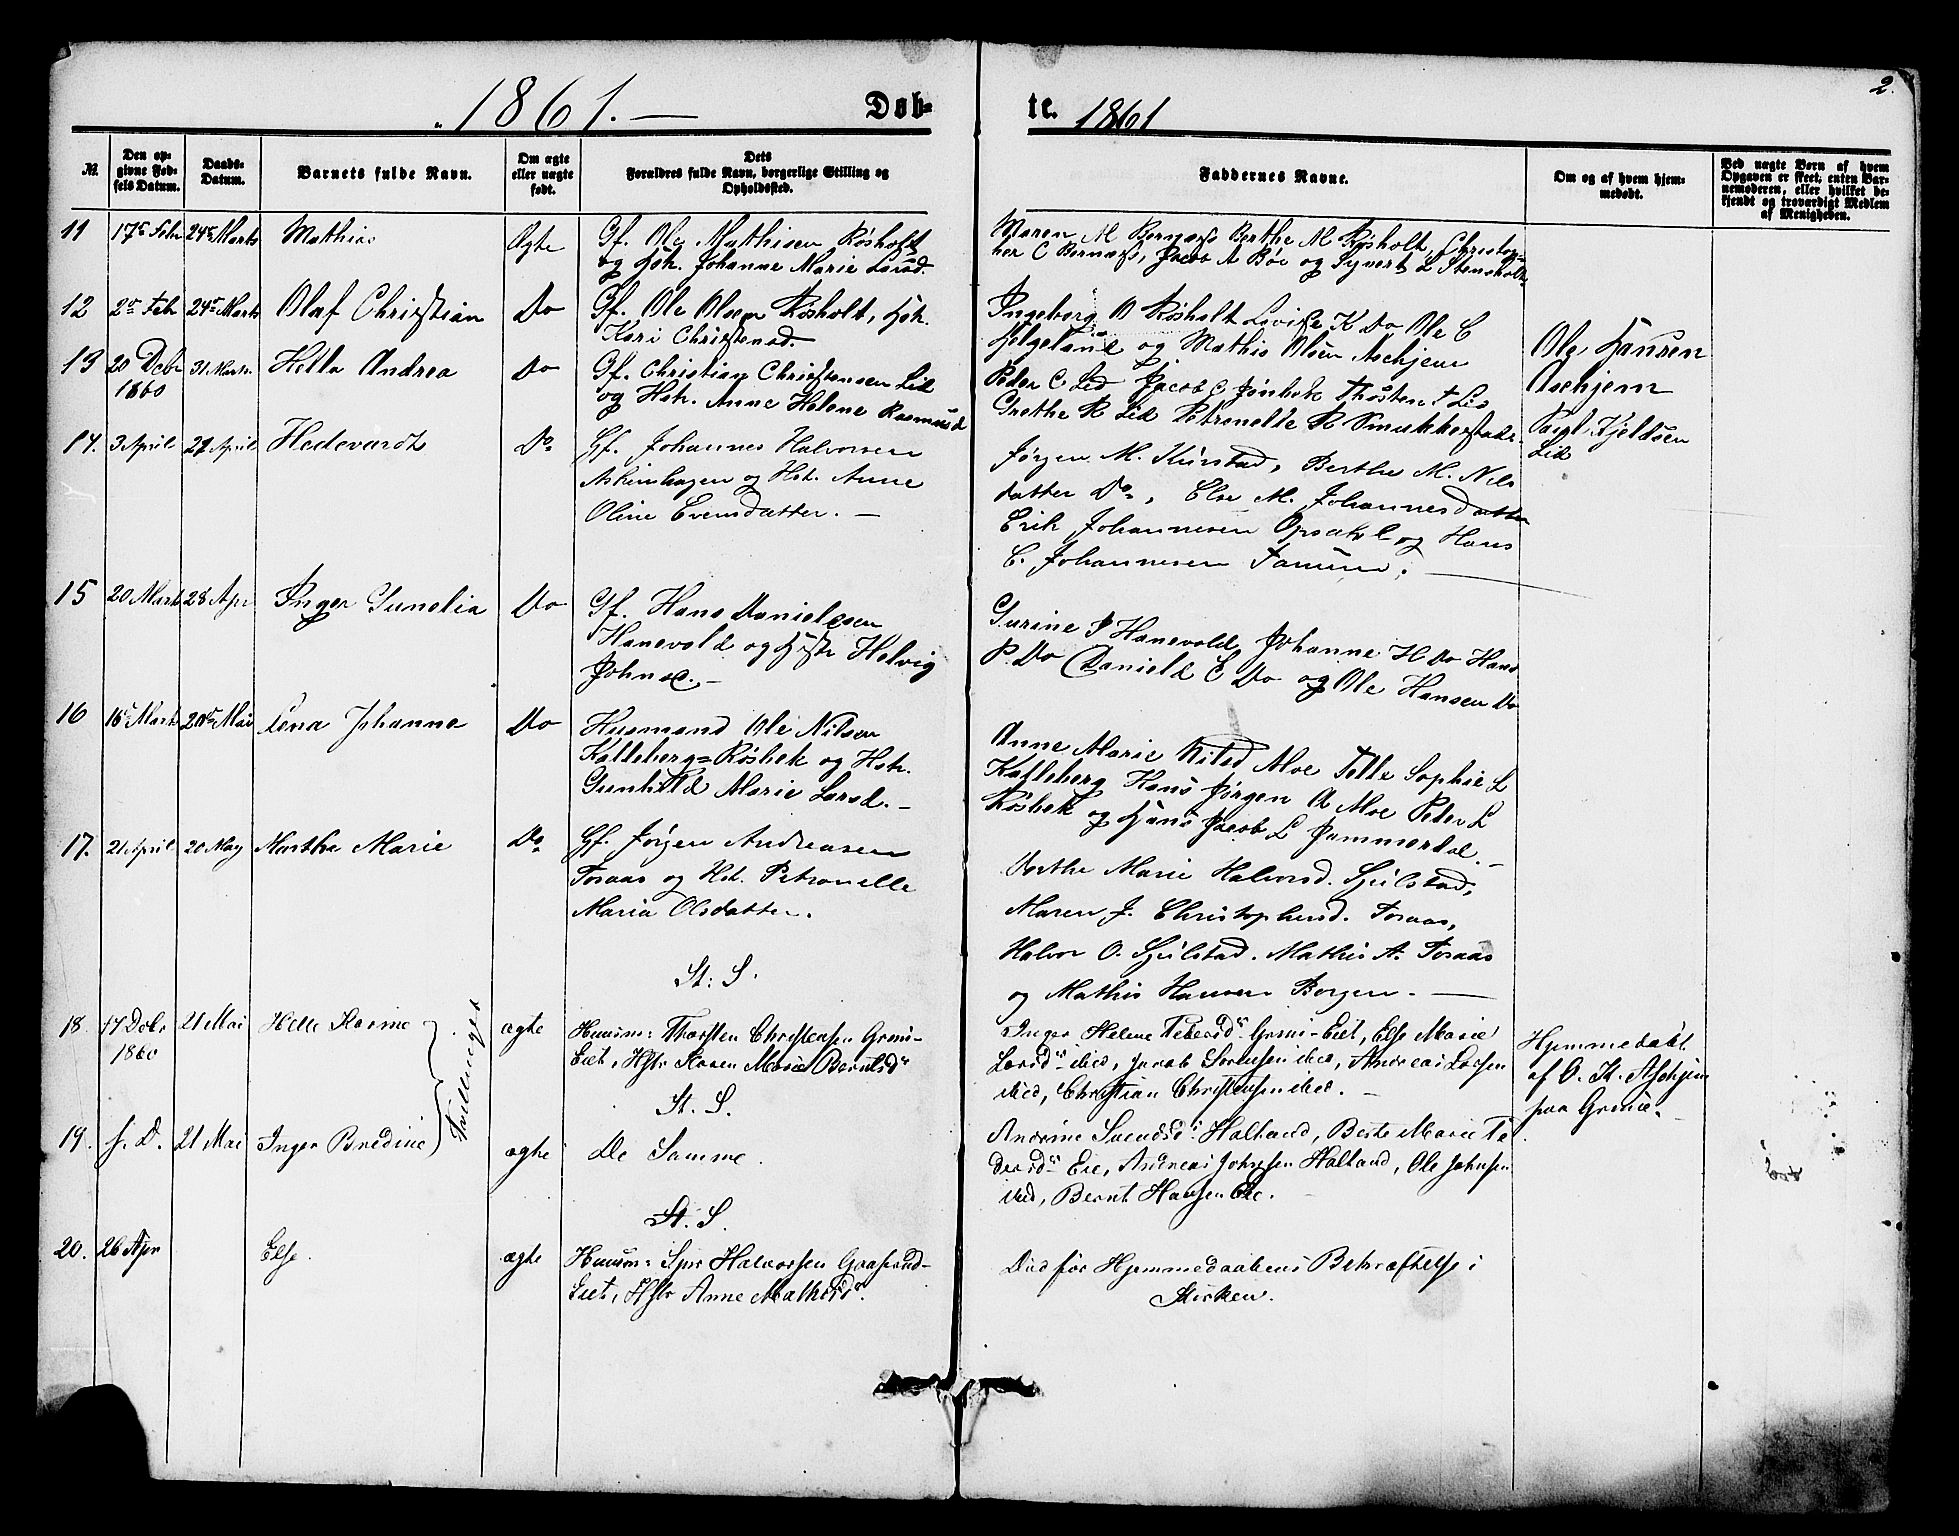 1861. — Døb-
te. 1861
2.
№.
Den op-
givne Fød-
sels Datum.
Daabs-
Datum.
Barnets fulde Navn.
Om ægte
eller uægte
født.
Dets
Forældres fulde Navn, borgerlige Stilling og
Opholdssted.
Faddernes Navne.
Om og af hvem hjem-
medøbt.
Ved uægte Børn af hvem
Opgaven er skeet, enten Bar-
nemoderen, eller hvilket be-
kjendt og troværdigt Medlem
af Menigheden.
11 17de Febr 24de Marts Mathias Ægte
Gf. Ole Mathisen Røsholt
og Hstr. Johanne Marie Larsd.
Maren M Bernæs Berthe M Røsholt, Christop-
her C Bernæs, Jacob A Bøe og Synert L Stensholt
12 2den Febr 24de Marts Olaf Christian Do
Gf. Ole Olsen Røsholt, Hstr.
Kari Christensd.
Ingeborg O Røsholt Lovise K Do Ole C
Helgeland og Mathis Olsen Aschjem
Ole Hansen
Aschjem
13 20 Decbr
1860
31 Marts Helle Andrea Do
Gf. Christian Christensen Lid
og Hstr. Anne Helene Rasmusd
Peder C Lid Jacob C Jønbek Thosten T Lid
Grethe R Lid Petronelle R Smukkerstad.
Kjeldsen
Lid
14. 3 April 21 April Hedevardt Do
Gf. Johannes Halvorsen
Askimhagen og Hst. Anne
Oline Evensdatter. —
Jørgen M. Kirstad, Berthe M. Nils
datter Do, Else M. Johannesdatter
Erik Johannesen Opsahl og Hans
C. Johannesen Tamum. —
15 20 Marts 28 Apr Inger Gunelia Do
Gf. Hans Danielsen
Hanevold og Hstr Helvig
Johnsd. —
Gurine P Hanevold, Johanne H Do Hans
P. Do Danield C Do og Ole Hansen Do
16 16 Marts 20de Mai Lena Johanne Do
Husmand Ole Nilsen
Kalleberg=Røsbek og Hstr.
Gunhild Marie Larsd. —
Anne Marie Nilsd Moe Telle Sophie L
Kalleberg Hans Jørgen A Moe Peder L
Røsbek og Hans Jacob L Jammerdal. —
17. 21 April 20 May Marthe Marie Do
Gf. Jørgen Andreasen
Foraas og Hst. Petronelle
Maria Olsdatter.
Dorthe Marie Halvorsd. Sjulstad,
Maren J. Christophersd. Foraas,
Halvor O. Sjulstad. Mathis A. Foraas
og Mathis Hansen Borgen. —
St: S.
18. 17 Decbr
1860
21 Mai Helle Karine ægte
Huusm: Thorsten Christensen Grini-
Eiet, Hstr Karen Marie Berntsd
Inger Helene Pedersd Grini-Eiet, Else Marie
Larsd ibid, Jacob Sorensen ibid, Andreas Larsen
ibid, Christian Christensen ibid. —
Hjemmedøbt
af O. K. Aschjem
paa Grinie.
Tvillinger
St. S.
19. s. D. 21 Mai Inger Bredine ægte
De Samme.
Andrine Svendsd Halland, Berte Marie Pe
dersd Eie, Andreas Johnsen Halland, Ole Johnsen
ibid, Bernt Hansen Eie.
St. S.
20. 26 Apr Else. ægte
Huusm: Iver Halvorsen Gaasrud-
Eiet, Hstr Anne Mathisd.
Død før Hjemmedaabens Bekræftelse i
Kirken.